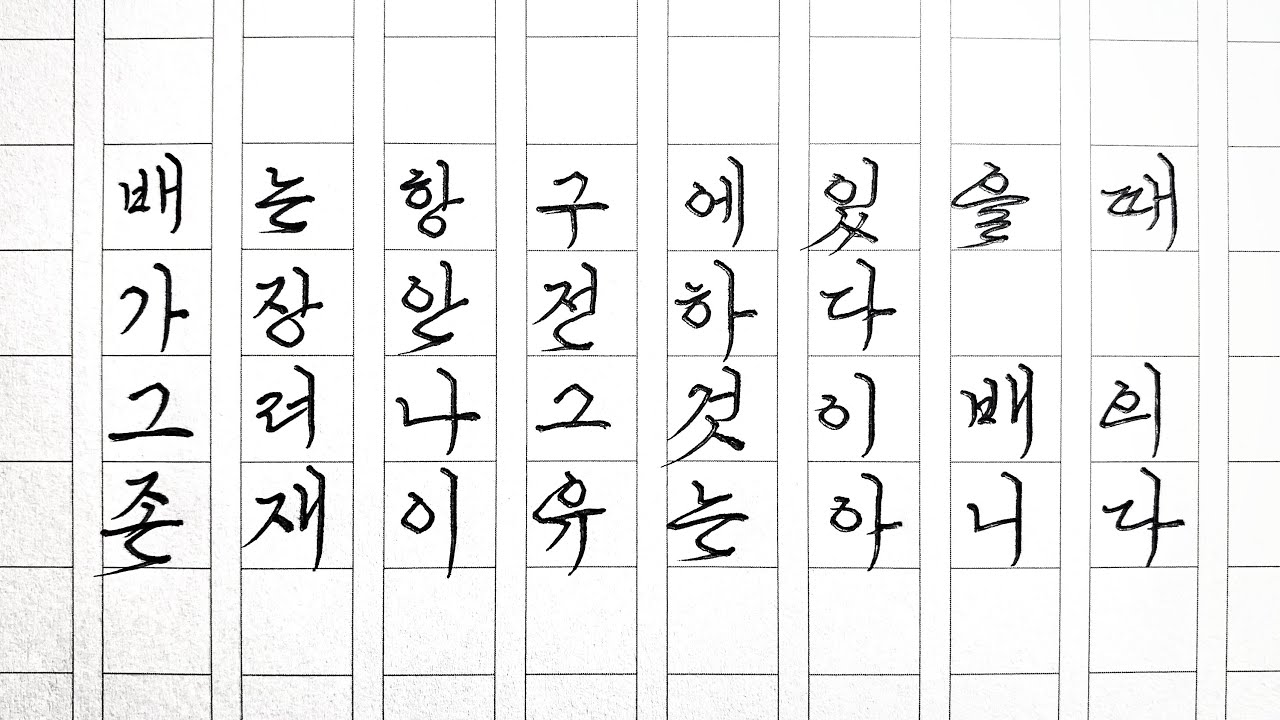 배는항구에있을때
가장안전하다
그러나그것이배의
존재이유는아니다